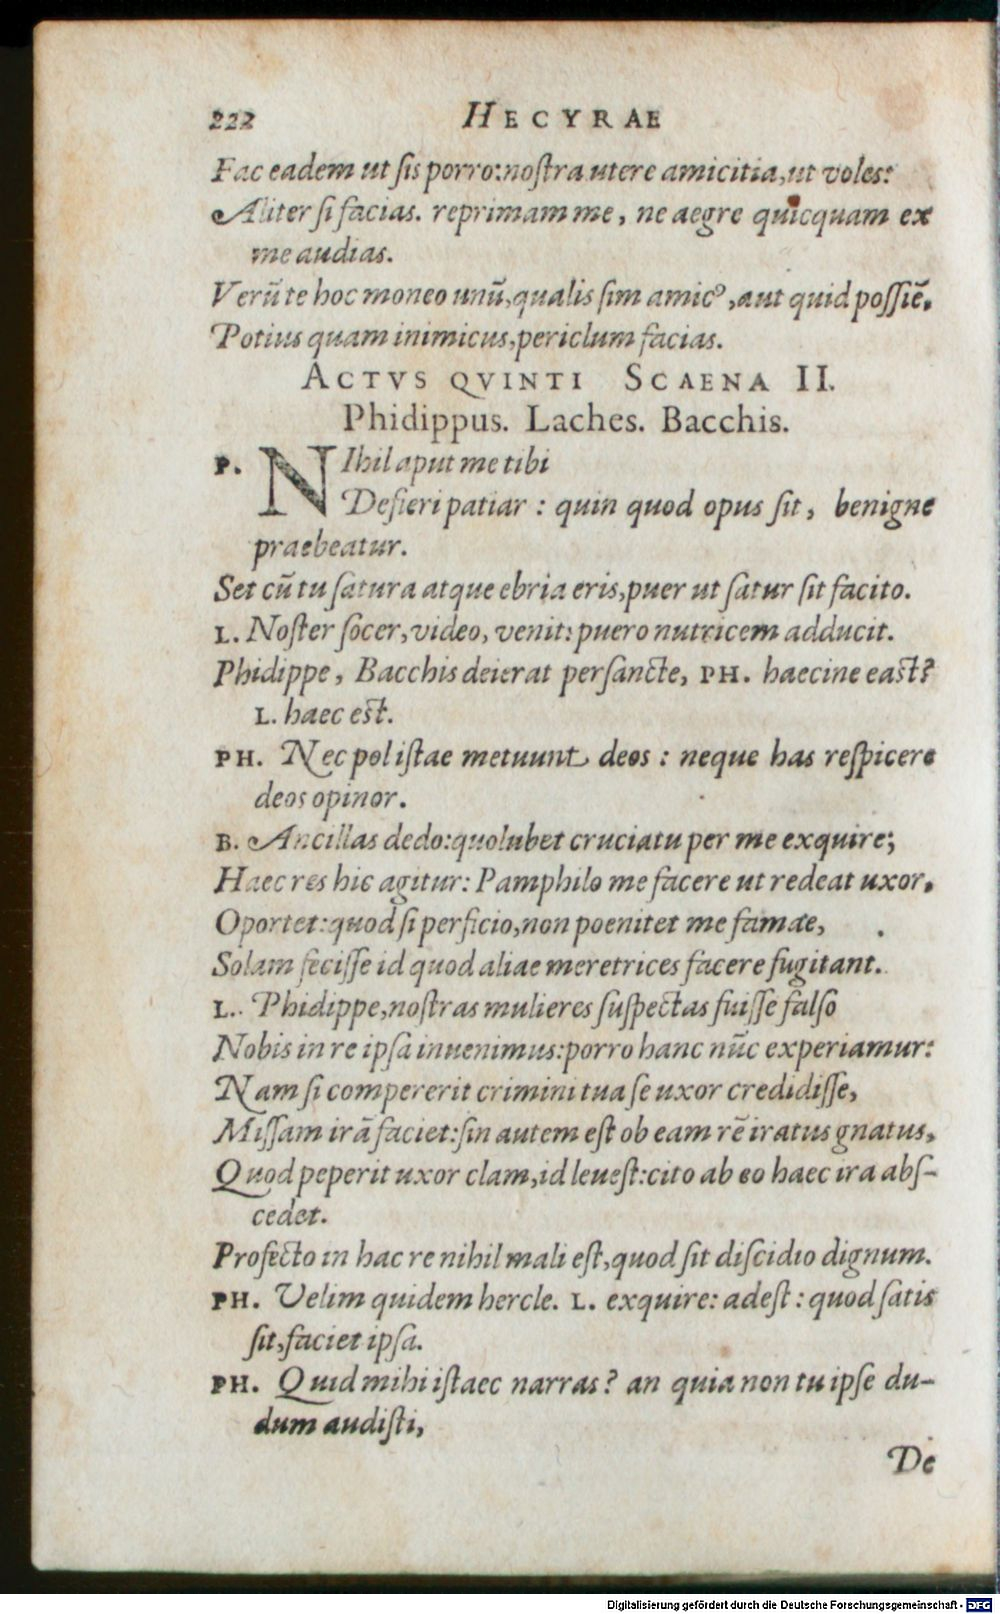 222 HECYRAE
Fac eadem ut ſis porro: noſtra utere amicitia, ut voles:
Aliter ſi facias. reprimam me, ne aegre quicquam ex
me audias.
Verũ te hoc moneo unũ, qualis ſim amicꝰ, aut quid poſſiẽ,
Potius quam inimicus, periclum facias.
ACTVS QVINTI SCAENA II.
Phidippus. Laches. Bacchis.
P. NIhil aput me tibi
Defieri patiar : quin quod opus ſit, benigne
praebeatur.
Set cũ tu ſatura atque ebria eris, puer ut ſatur ſit facito.
L. Noſter ſocer, video, venit: puero nutricem adducit.
Phidippe, Bacchis deierat perſancte, PH. haecine east?
L. haec est.
PH. Nec pol iſtae metuunt deos : neque has reſpicere
deos opinor.
B. Ancillas dedo: quolubet cruciatu per me exquire;
Haec res hic agitur: Pamphilo me facere ut redeat uxor,
Oportet: quod ſi perficio, non poenitet me famae,
Solam feciſſe id quod aliae meretrices facere fugitant.
L. Phidippe, noſtras mulieres ſuſpectas fuiſſe falſo
Nobis in re ipſa inuenimus: porro hanc nũc experiamur:
Nam ſi compererit crimini tua ſe uxor credidiſſe,
Miſſam irã faciet: ſin autem eſt ob eam rẽ iratus gnatus,
Quod peperit uxor clam, id leueſt: cito ab eo haec ira abſ-
cedet.
Profecto in hac re nihil mali eſt, quod ſit diſcidio dignum.
PH. Velim quidem hercle. L. exquire: adeſt : quod ſatis
ſit, faciet ipſa.
PH. Quid mihi iſtaec narras? an quia non tu ipſe du-
dum audiſti,
De
Digitalisierung gefördert durch die Deutsche Forschungsgemeinschaft - DFG